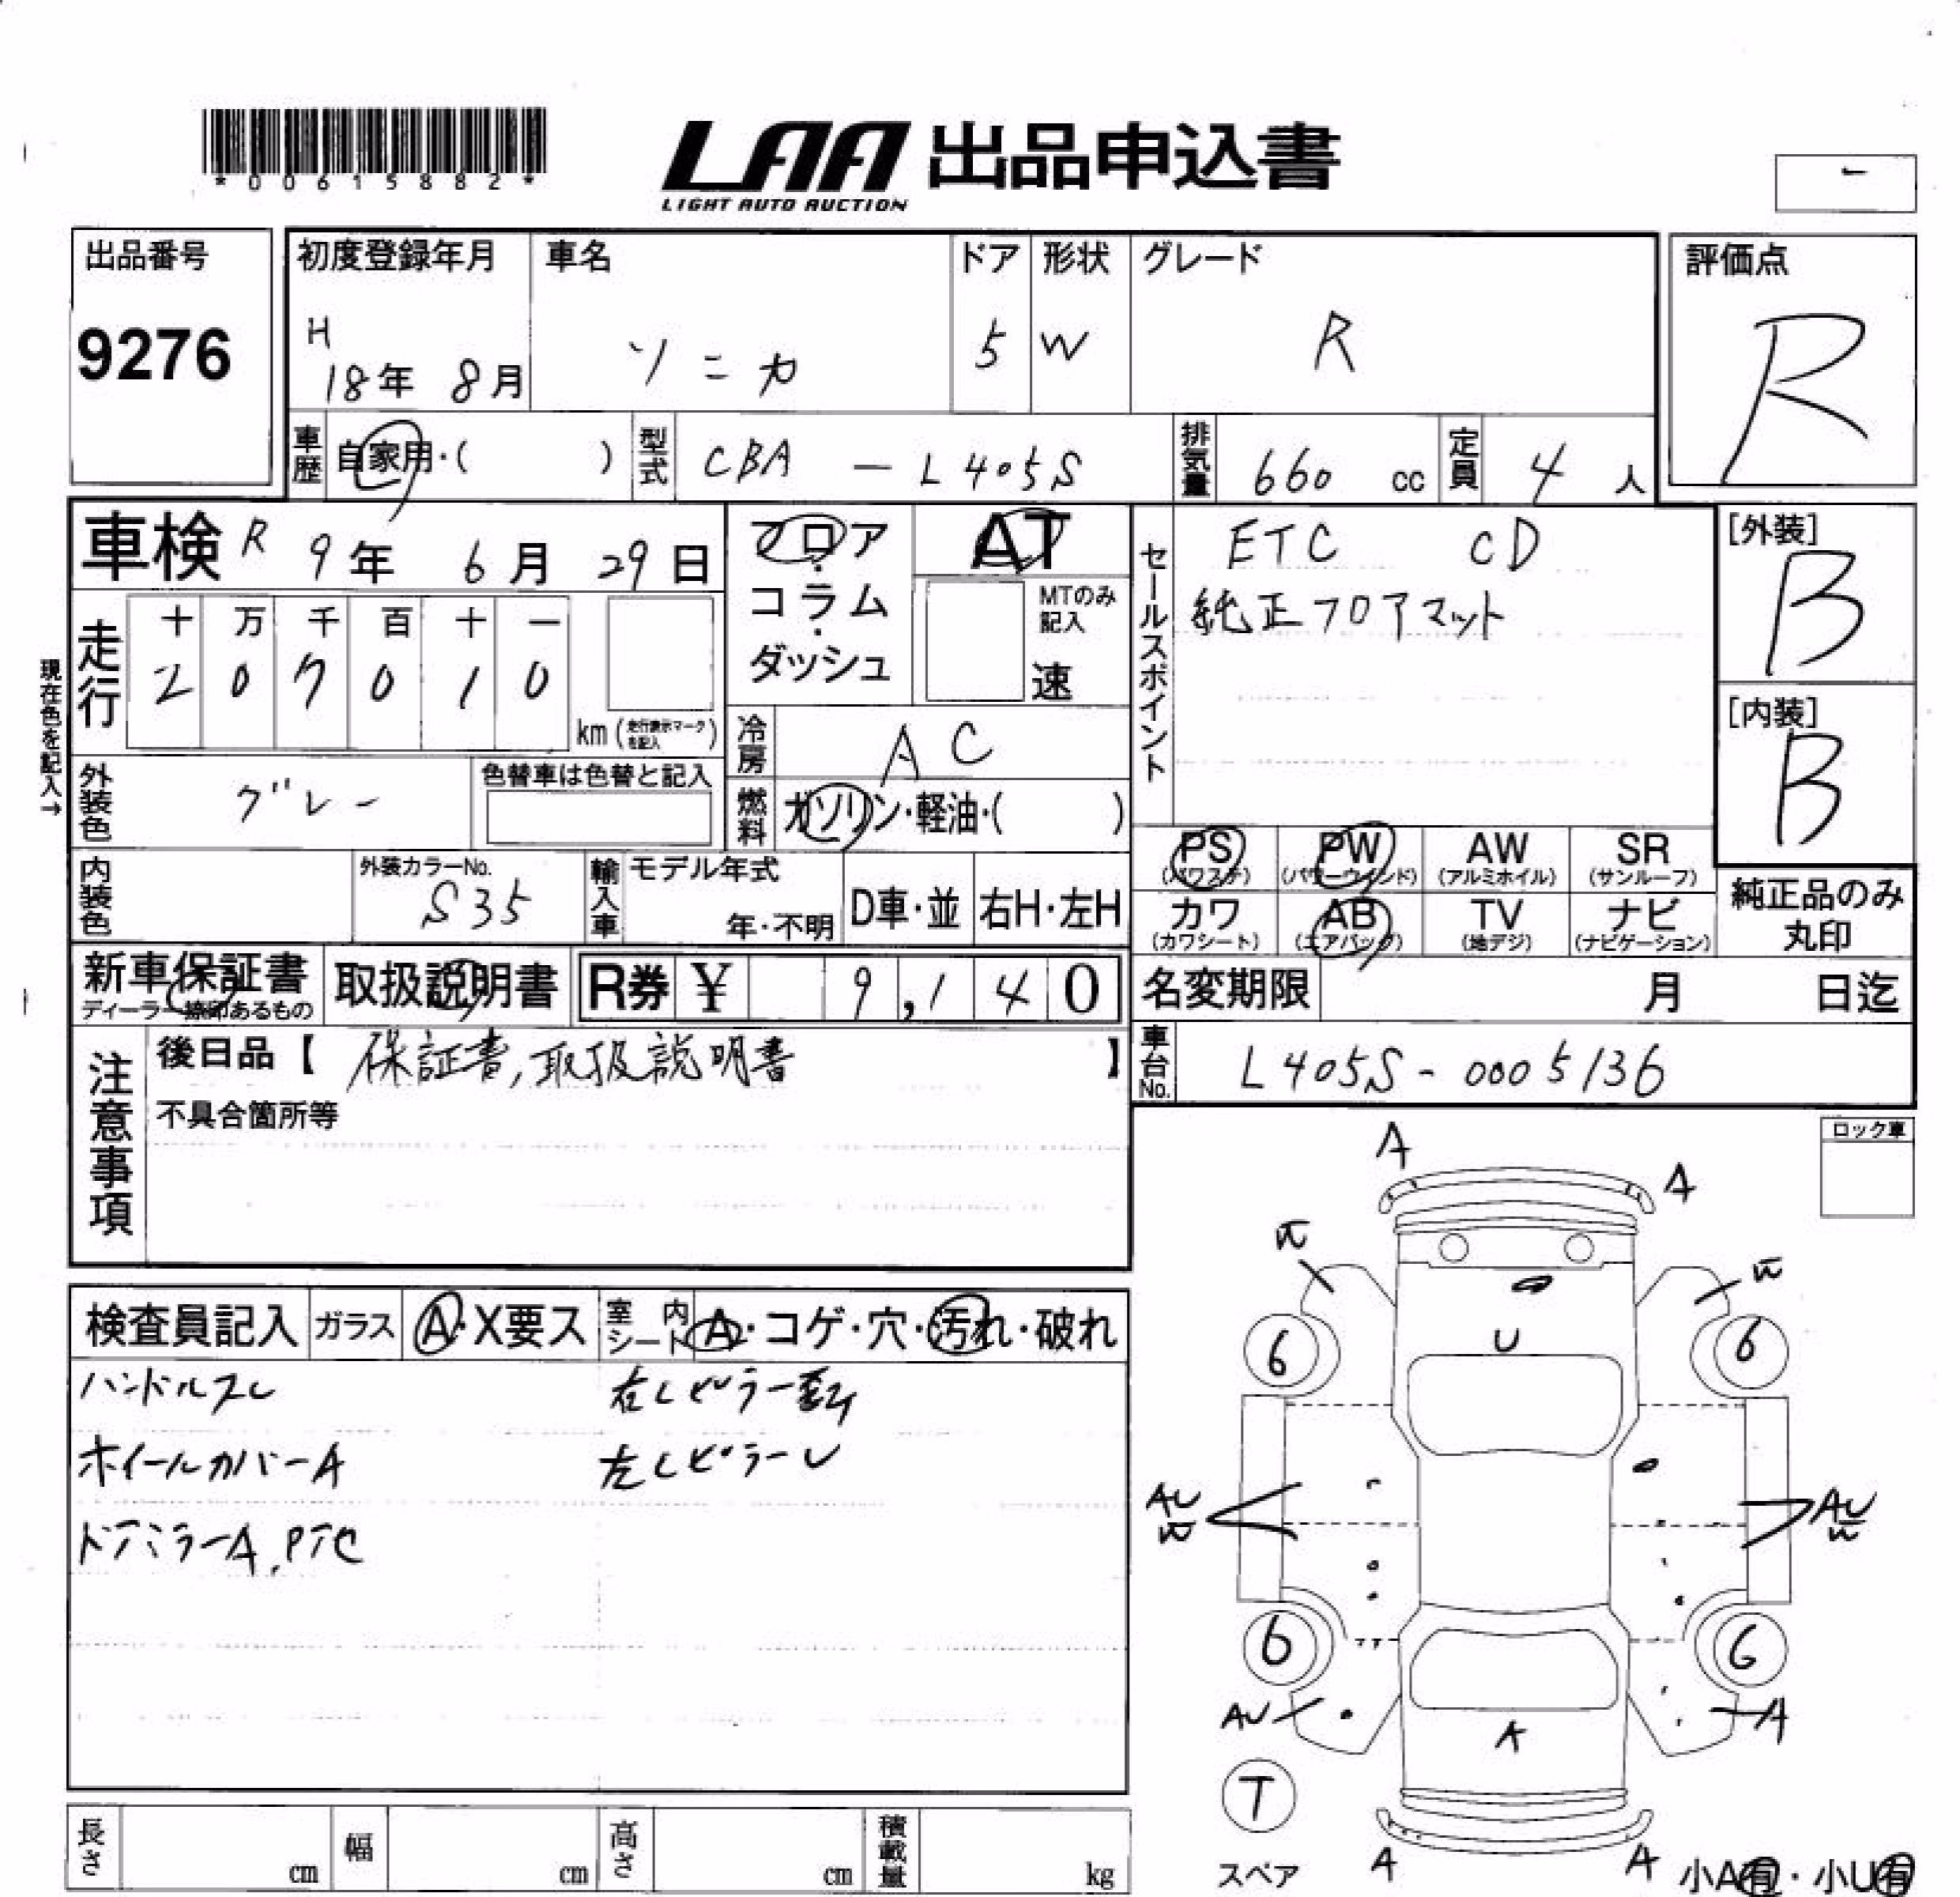 *00615882*
LAA 出品申込書
LIGHT AUTO AUCTION
出品番号
9276
初度登録年月
H
18年 8月
車名
ソニカ
ドア
5
形状
W
グレード
R
評価点
R
車歴 自家用・( )
型式 CBA - L405S
排気量 660 cc
定員 4 人
車検 R 9年 6月 29日
フロア・コラム・ダッシュ
AT
MTのみ記入
速
セールスポイント
ETC CD
純正フロアマット
[外装]
B
[内装]
B
現在色を記入→
走行
十 万 千 百 十 一
2 0 7 0 1 0
km (走行表示マークを記入)
冷房 AC
外装色 グレー
色替車は色替と記入
燃料 ガソリン・軽油・( )
PS (パワステ)
PW (パワーウィンド)
AW (アルミホイル)
SR (サンルーフ)
カワ (カワシート)
AB (エアバッグ)
TV (地デジ)
ナビ (ナビゲーション)
純正品のみ丸印
内装色
外装カラーNo.
S35
輸入車
モデル年式
年・不明
D車・並
右H・左H
新車保証書
ディーラー捺印あるもの
取扱説明書
R券 ¥ 9,140
名変期限 月 日迄
注意事項
後日品【 保証書,取扱説明書 】
不具合箇所等
車台No. L405S-0005136
ロック車
検査員記入
ガラス A・X要ス
室内シート A・コゲ・穴・汚れ・破れ
ハンドルスレ
ホイールカバーA
ドアミラーA,
左Lピラー U
A
A
U
6
6
AU
AU
6
6
AU
A
A
T
スペア
A
A
小A有・小U有
長さ cm
幅 cm
高さ cm
積載量 kg